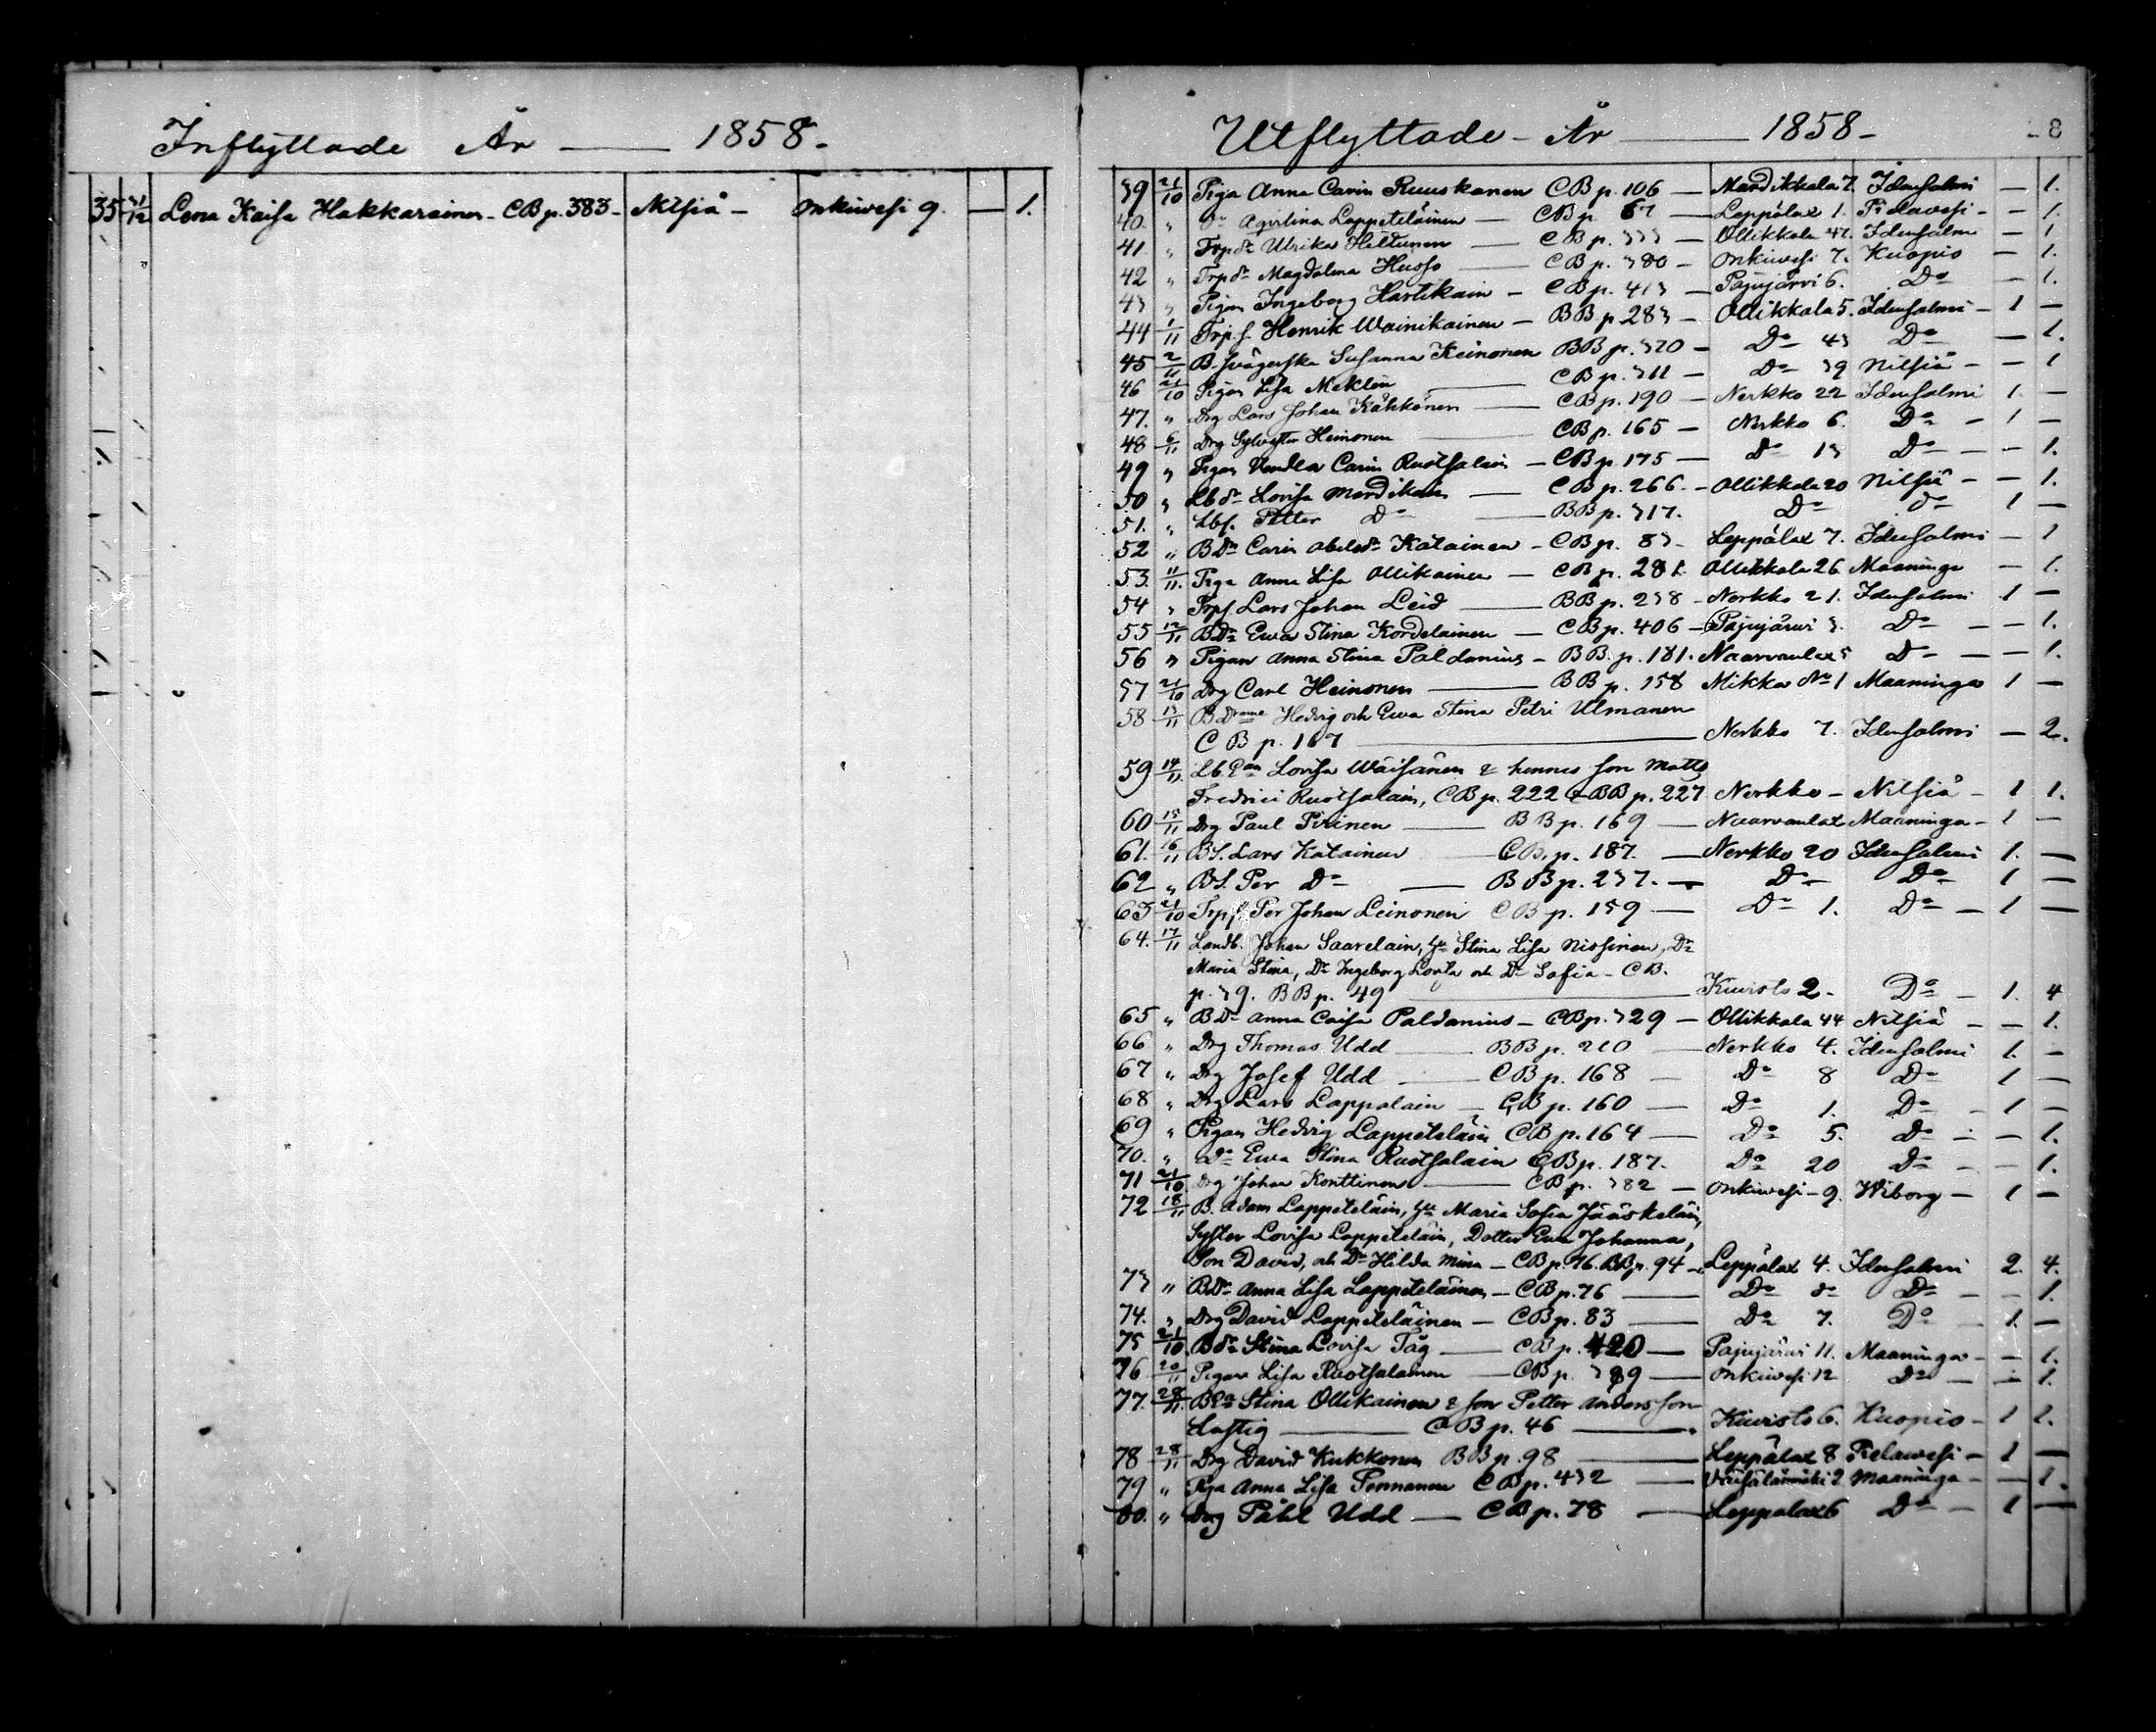 Inflyttade År — 1858.
35 31/12 Lena Kaisa Hakkarainen - CB p. 383 - Nilsiä - Onkiwesi 9. — 1.
Utflyttade - År — 1858 -
8
39 21/10 Piga Anna Carin Ruuskanen CB p. 106 — Mardikkala 7. Idensalmi — 1.
40. " Do Agelina Lappeteläinen — CB p. 67 — Leppälax 1. Pielavesi - — 1.
41 " Trp dr Ulrika Hiltunen — CB p. 333 — Ollikkala 47. Idensalmi — 1
42 " Trp dr Magdalena Husso — CB p. 380 — Onkiwesi 7. Kuopio — 1.
43 " Pigan Ingeborg Hartikain — CB p. 413 — Pajujärvi 6. Do — 1.
44 1/11 Trp. s. Henrik Wainikainen — BB p 283 — Ollikkala 5. Idensalmi - 1 —
45 2/11 B. svägerska Susanna Keinonen BB p. 320 — Do 43 Do — 1.
46 21/10 Pigan Lisa Meklin — CB p. 311 — Do 39 Nilsiä - — 1
47. " Drg Lars Johan Kähkönen — CB p. 190 — Nerkko 22 Idensalmi 1. —
48 6/11 Drg Sylvester Heinonen — CB p. 165 — Nerkko 6. Do - 1 —
49 " Pigan Vendla Carin Ruotsalain — CB p 175 — Do 13 Do — — 1.
50 " Lb dr Lovisa Mardikain — CB p. 266. — Ollikkala 20 Nilsiä - — 1.
51. " Lbs. Petter Do — BB p. 317. Do do 1 —
52 " B Dr Carin Abelsdr Katainen — CB p. 83 - Leppälax 7. Idensalmi — 1
53. 11/11. Piga Anna Lisa Ollikainen — CB p. 281. Ollikkala 26 Maaninga — 1.
54 " Trps Lars Johan Leid — BB p. 238 - Nerkko 21. Idensalmi 1 —
55 12/11 B Dr Ewa Stina Kordelainen — CB p. 406 — Pajujärwi 3. Do — — 1.
56 " Pigan Anna Stina Paldanius - BB. p. 181. Naarvanlax 5 Do — — 1.
57 21/10 Drg Carl Heinonen — BB p. 158 Mikka No 1 Maaninga 1 —
58 13/11 B Drarne Hedvig och Ewa Stina Petri Ulmanen
CB p. 167 — Nerkko 7. Idensalmi — 2.
59 14/11. Lb. Ean Lovisa Wäisänen & hennes son Matts
Fredrici Ruotsalain, CB p. 222 & BB p. 227 Nerkko — Nilsiä - 1 1.
60 15/11 Drg Paul Pirinen — BB p. 169 — Naarvanlax Maaninga — 1 —
61. 16/11 BS. Lars Katainen — CB. p. 187. — Nerkko 20 Idensalmi 1. —
62 " BS. Per Do — BB p. 237. — Do Do 1 —
63 21/10 Trps. Per Johan Leinonen CB p. 159 — Do 1. Do — 1 —
64. 17/11 Landb. Johan Saarelain, Hu Stina Lisa Nissinen, Dr
Maria Stina, Dr Ingeborg Lovisa och Dr Sofia - CB.
p. 39. BB p. 49 — Kiuristo 2 - Do — 1. 4
65 " B Dr Anna Caisa Paldanius — CB p. 329 — Ollikkala 44 Nilsiä - — 1.
66 " Drg Thomas Udd — BB p. 210 — Nerkko 4. Idensalmi 1. -
67 " Drg Josef Udd — CB p. 168 — Do 8 Do 1 —
68 " Drg Lars Lappalain — CB p. 160 — Do 1. Do — 1 —
69 " Pigan Hedvig Lappeteläin CB p. 164 — Do 5. Do - — 1.
70. " Do Ewa Stina Ruotsalain CB p. 187. Do 20 Do — — 1.
71 21/10 Drg Johan Konttinen — CB p. 382 — Onkiwesi - 9. Wiborg — 1 —
72 18/11 B. Adam Lappeteläin, Hu Maria Sofia Jääskeläin,
Syster Lovisa Lappeteläin, Dotter Ewa Johanna,
Son David, och Dr Hilda Mina — CB p. 76. BB p. 94 — Leppälax 4. Idensalmi 2. 4.
73 " B Dr Anna Lisa Lappeteläinen — CB p. 76 — Do do Do — — 1.
74. " Drg David Lappeteläinen — CB p. 83 — Do 7. Do — 1. —
75 21/10. B dr Stina Lovisa Tåg — CB p. 420 — Pajujärwi 11. Maaninga — — 1.
76 20/11 Pigan Lisa Ruotsalainen — CB p. 389 — Onkiwesi 12 Do — — 1.
77. 28/11. B Ea Stina Ollikainen & son Petter Andersson
Lustig — CB p. 46 — Kiuristo 6. Kuopio — 1 1.
78 28/11 Drg David Kukkonen BB p. 98 — Leppälax 8 Pielawesi — 1 —
79 " Piga Anna Lisa Pennanen CB p. 432 — Väisälänmäki 2 Maaninga — — 1.
80. " Drg Påhl Udd — CB p. 78 — Leppälax 6 Do — 1 —